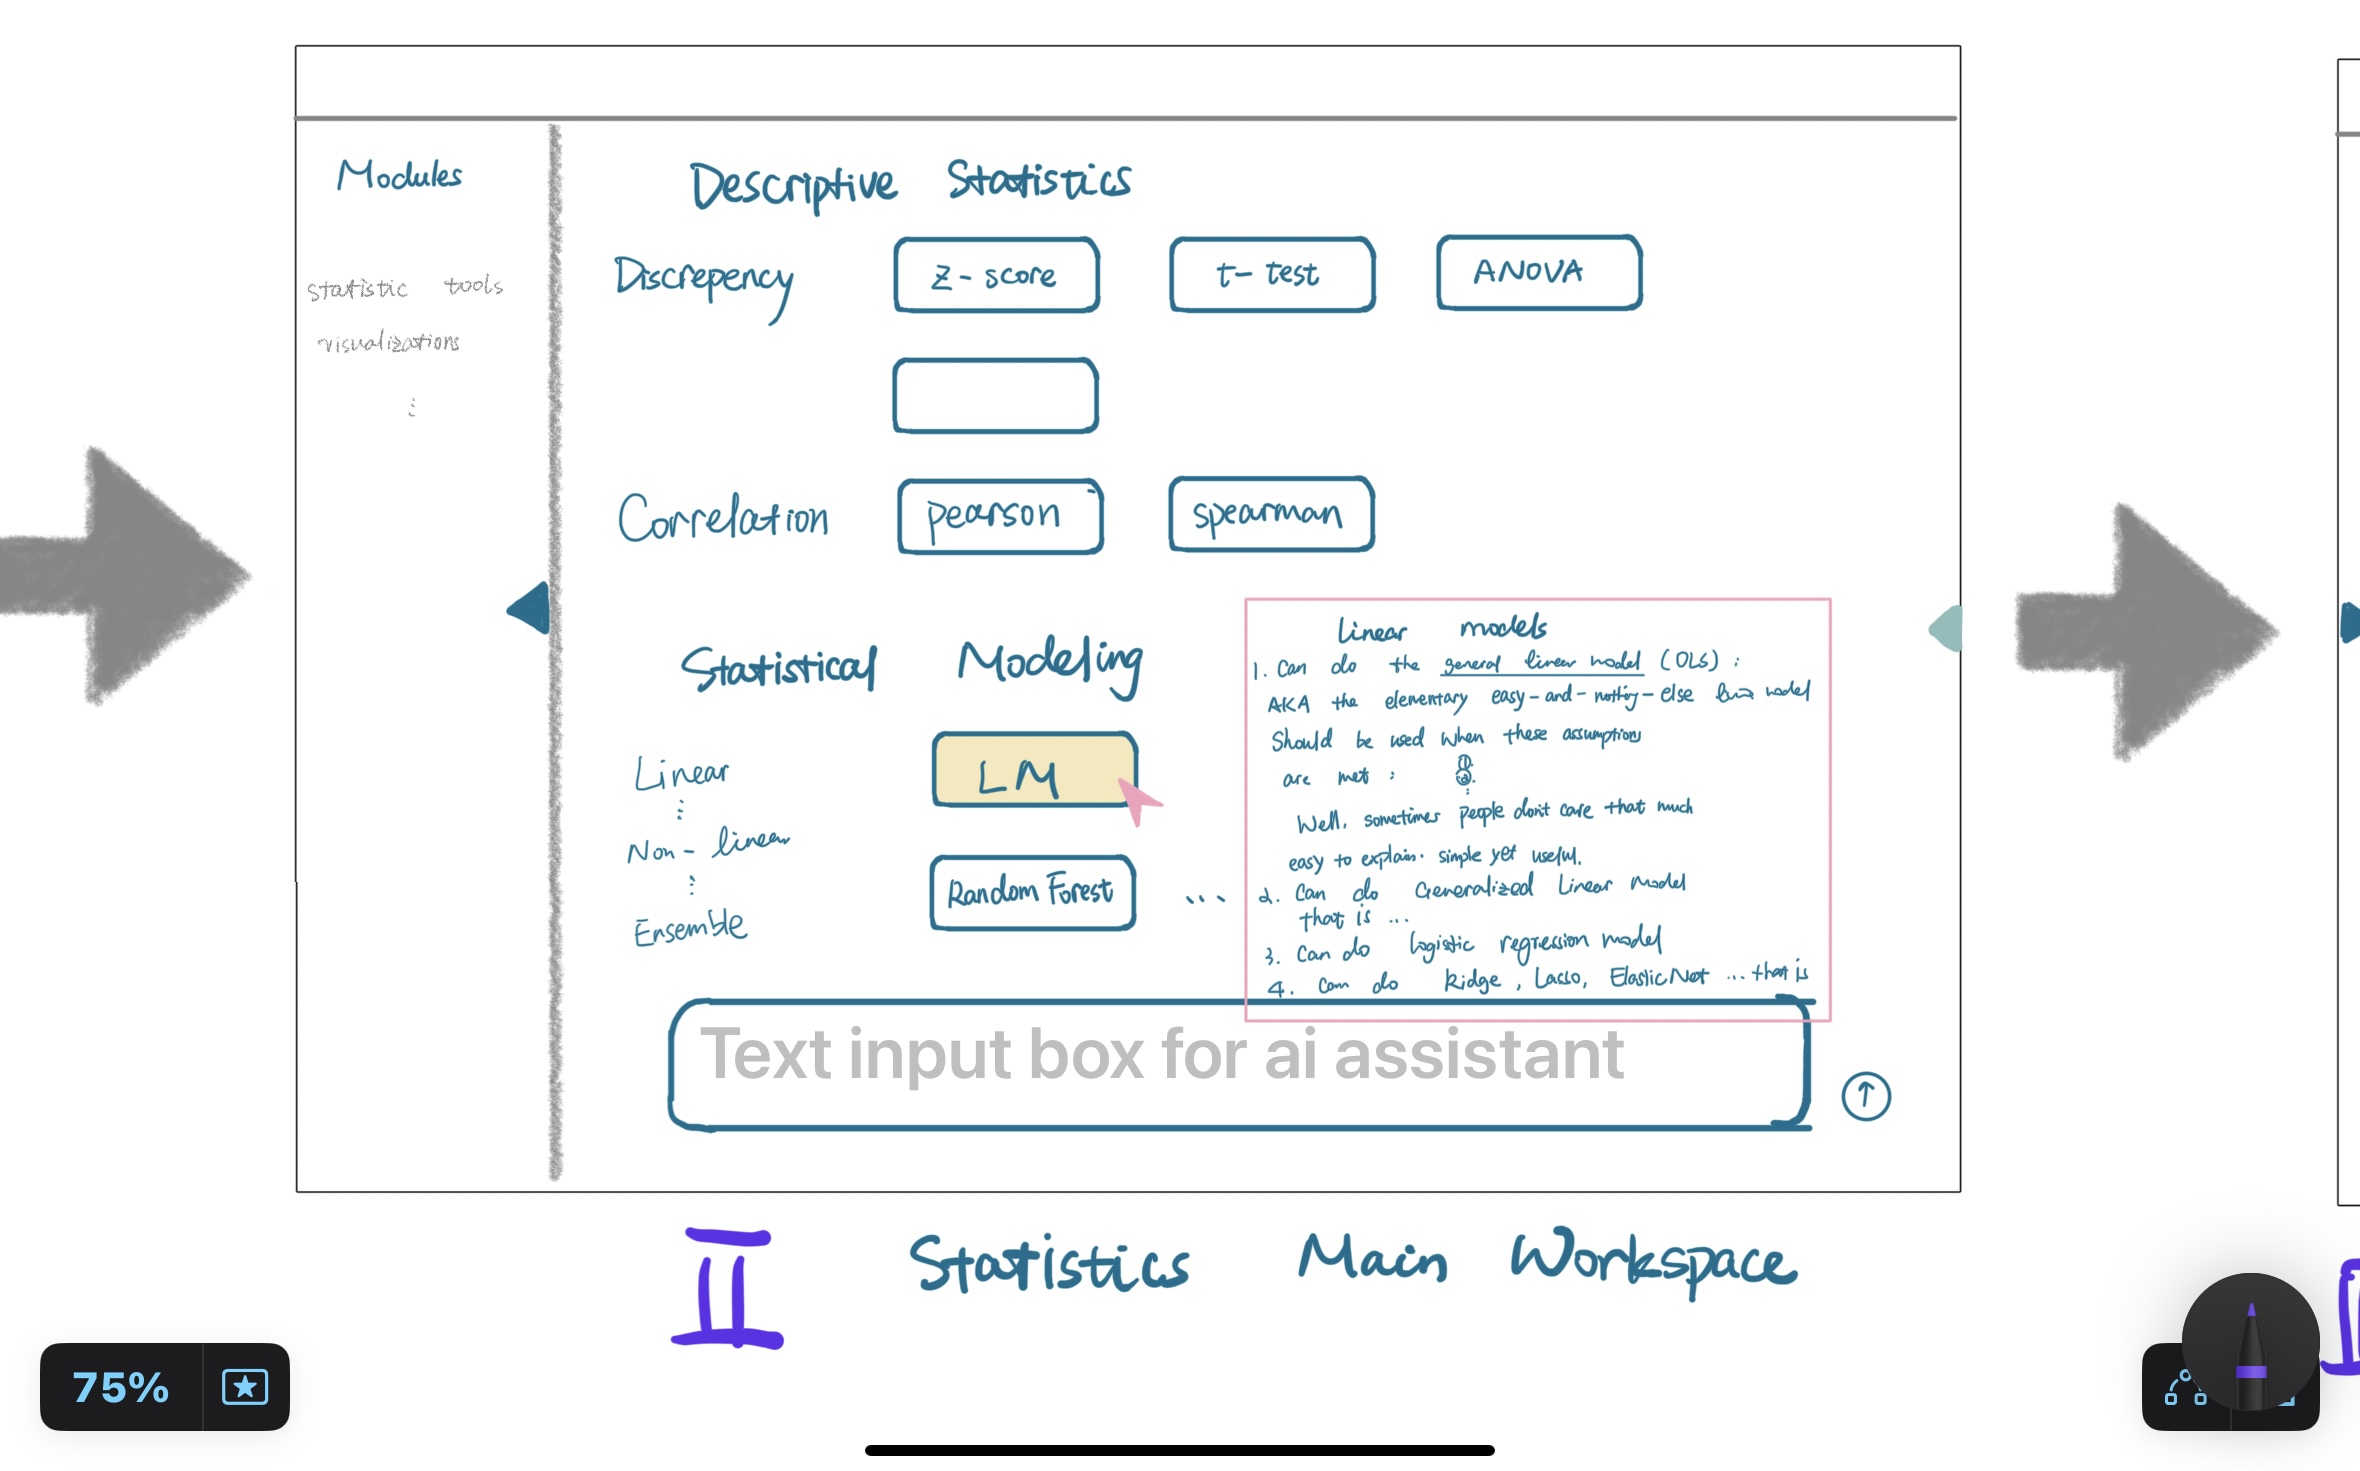 Modules
statistic tools
visualizations
Descriptive Statistics
Discrepency
z-score
t-test
ANOVA
Correlation
pearson
spearman
Statistical Modeling
Linear
Non-linear
Ensemble
LM
Random Forest
...
linear models
1. Can do the general linear model (OLS) :
AKA the elementary easy-and-nothing-else model
Should be used when these assumptions
are met : ①.
②.
Well, sometimes people don't care that much
easy to explain. simple yet useful.
2. Can do Generalized Linear Model
that is ...
3. Can do logistic regression model
4. Can do Ridge, Lasso, ElasticNet ... that is
Text input box for ai assistant
II Statistics Main Workspace
75%